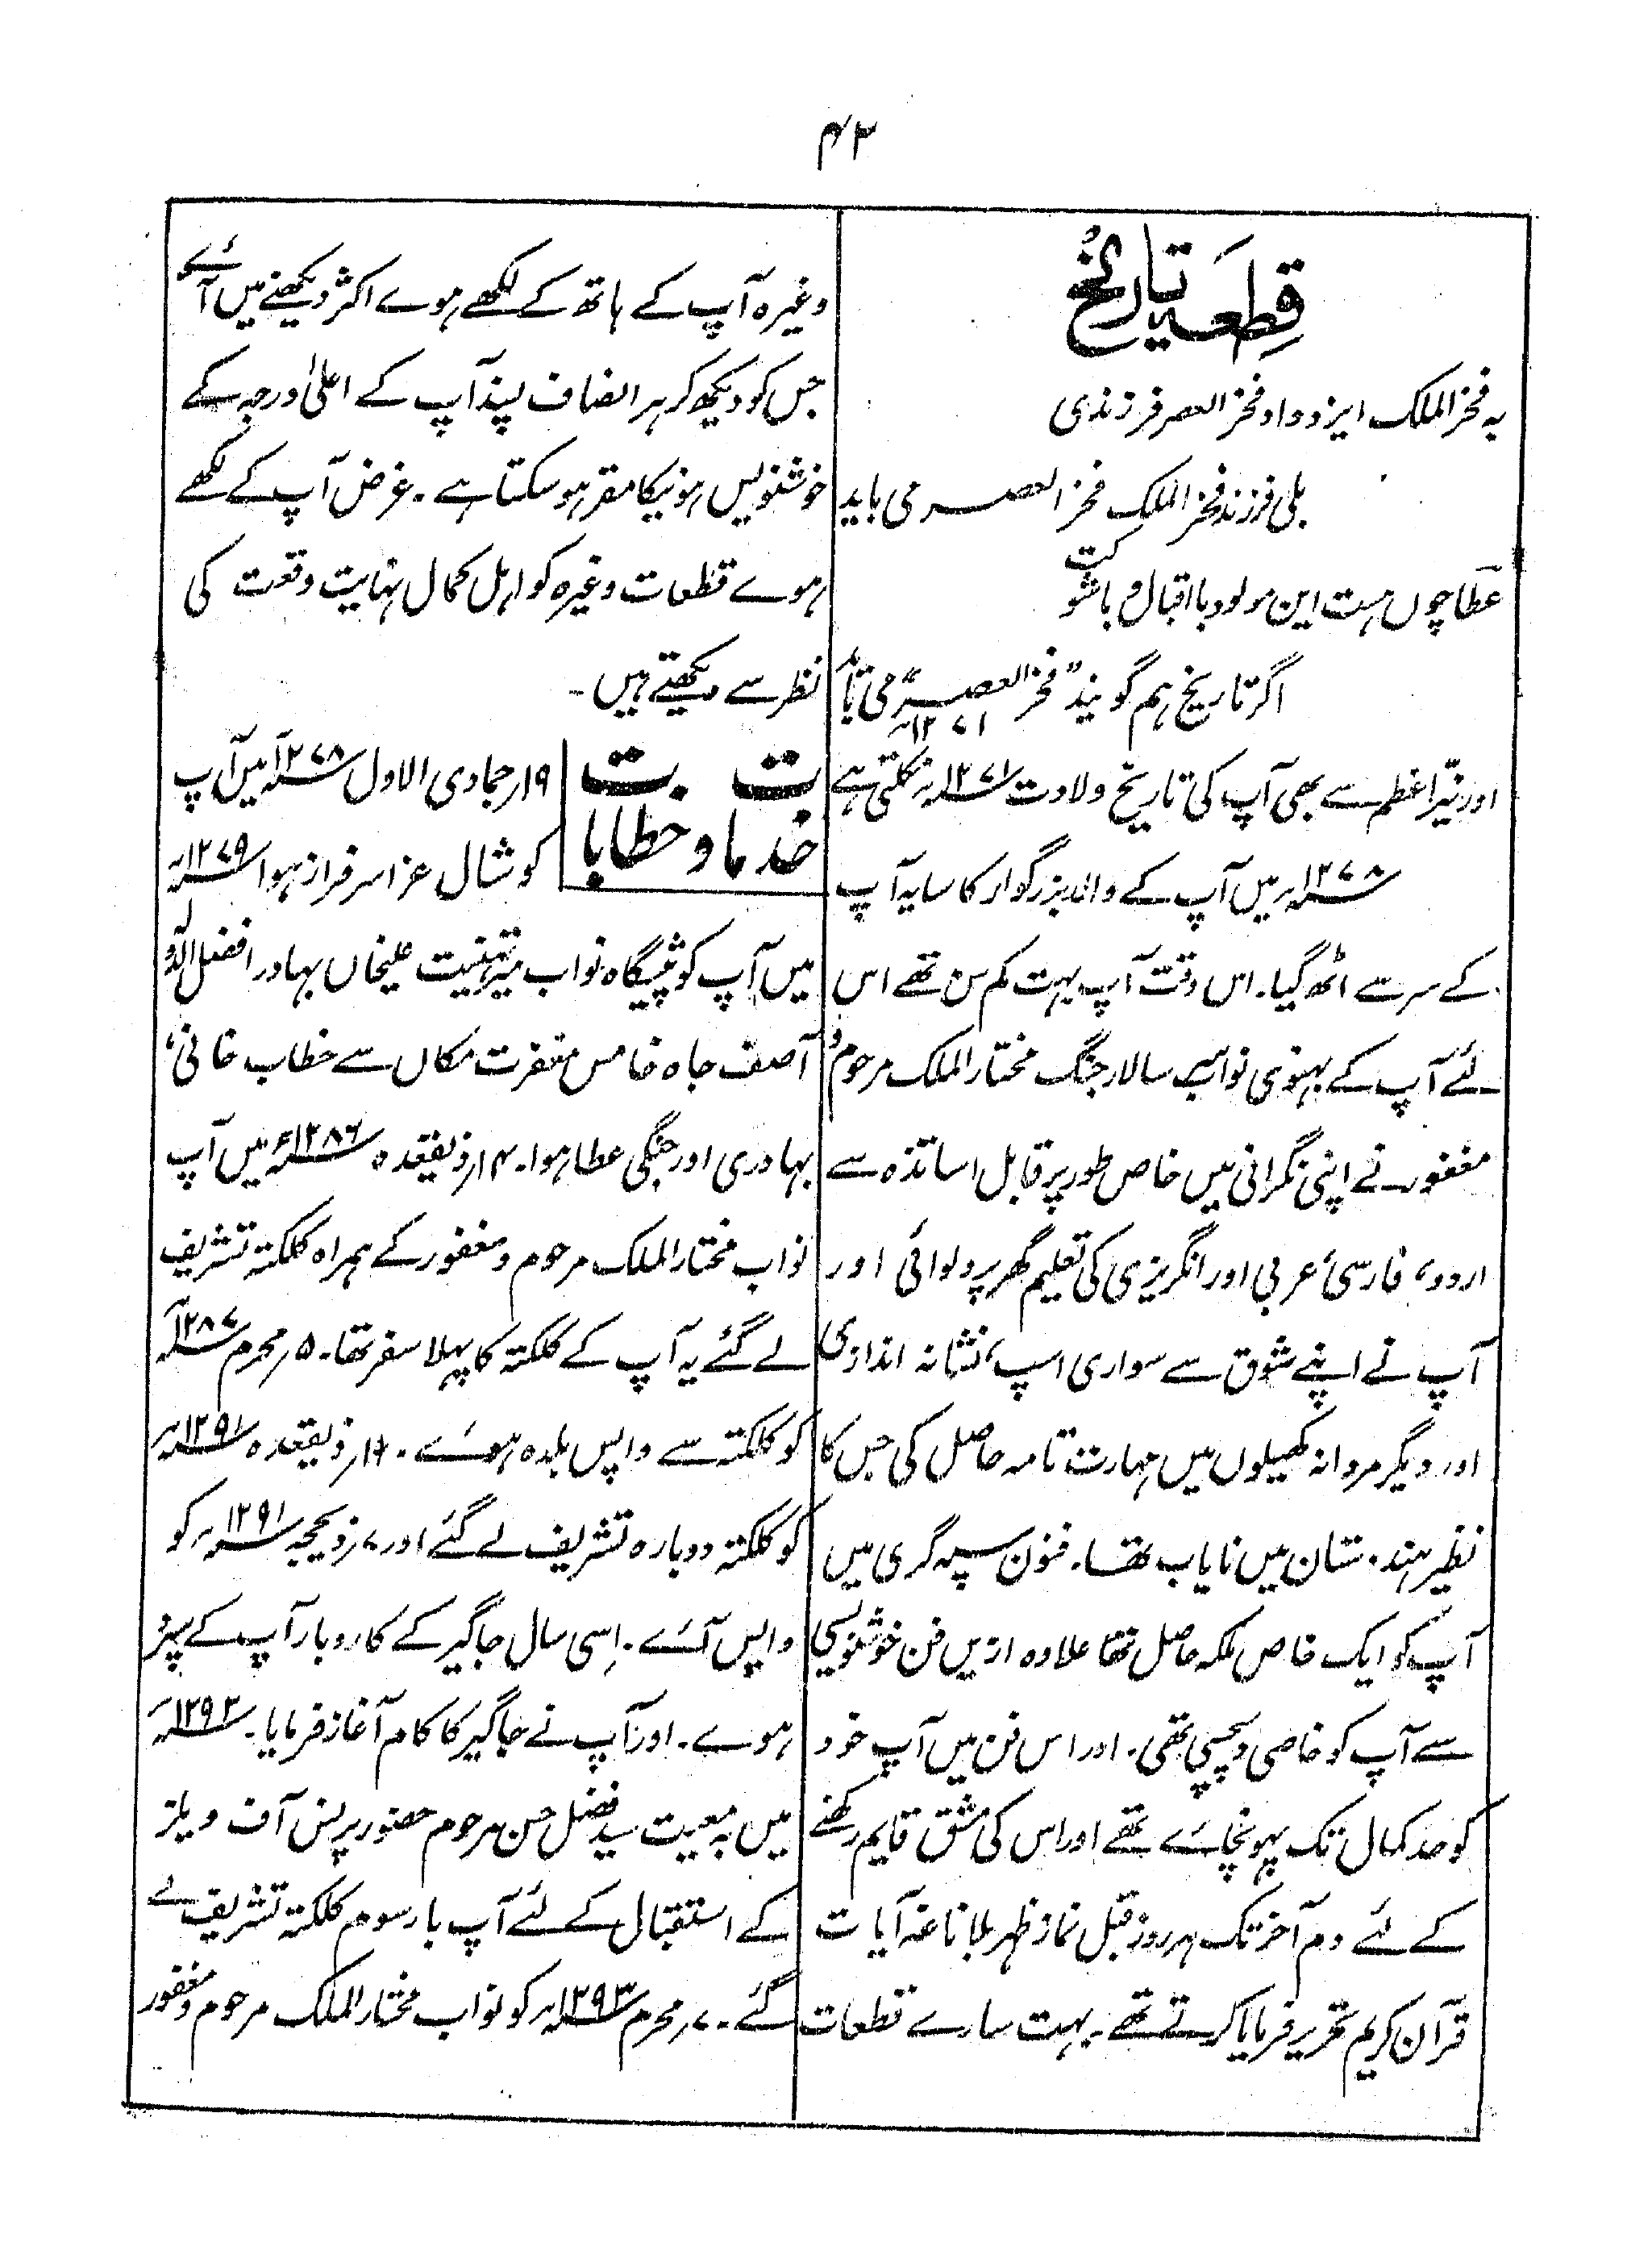 ۴۲
قطعہ تاریخ
بہ فخر الملک ایزد داد فخر العصر فرزندی
بلی فرزند فخر الملک فخر العصر می باید
عطا چوں ہست این مولود با اقبال و با شوکت
اگر تاریخ ہم گویند "فخر العصر" می تابد
۱۲۷۱ھ
اور نیّر اعظم سے بھی آپ کی تاریخ ولادت ۱۲۷۱ھ نکلتی ہے
۱۲۷۸ھ میں آپ کے والد بزرگوار کا سایہ آپ
کے سر سے اٹھ گیا۔ اس وقت آپ بہت کم سن تھے اس
لئے آپ کے بہنوی نواب سر سالار جنگ مختار الملک مرحوم و
مغفور نے اپنی نگرانی میں خاص طور پر قابل اساتذہ سے
اردو، فارسی، عربی اور انگریزی کی تعلیم گھر پر دلوائی اور
آپ نے اپنے شوق سے سواری اسپ، نشانہ اندازی
اور دیگر مردانہ کھیلوں میں مہارت تامہ حاصل کی جس کا
نظیر ہندستان میں نایاب تھا۔ فنون سپہ گری میں
آپ کو ایک خاص ملکہ حاصل تھا علاوہ ازیں فن خوشنویسی
سے آپ کو خاصی دلچسپی تھی۔ اور اس فن میں آپ خود
کو حد کمال تک پہونچائے تھے اور اس کی مشق قایم رکھنے
کے لئے دم آخر تک ہر روز قبل نماز ظہر بلا ناغہ آیات
قرآن کریم تحریر فرمایا کرتے تھے۔ بہت سارے قطعات
وغیرہ آپ کے ہاتھ کے لکھے ہوے اکثر دیکھنے میں آئے
جس کو دیکھ کر ہر انصاف پسند آپ کے اعلیٰ درجہ کے
خوشنویس ہونیکا مقر ہو سکتا ہے۔ غرض آپ کے لکھے
ہوے قطعات وغیرہ کو اہل کمال نہایت وقعت کی
نظر سے دیکھتے ہیں۔
خدمات و خطابات
۱۹ر جمادی الاول ۱۲۷۸ھ میں آپ
کو شال عزا سرفراز ہوا ۱۲۷۹ھ
میں آپ کو پیشگاہ نواب میر تہنیت علیخاں بہادر افضل الدولہ
آصف جاہ خامس مغفرت مکاں سے خطاب خانی،
بہادری اور جنگی عطا ہوا۔ ۱۴ر ذیقعدہ ۱۲۸۶ھ میں آپ
نواب مختار الملک مرحوم و مغفور کے ہمراہ کلکتہ تشریف
لے گئے یہ آپ کے کلکتہ کا پہلا سفر تھا۔ ۵ر محرم ۱۲۸۷ھ
کو کلکتہ سے واپس بلدہ ہوئے۔ ۱۶ر ذیقعدہ ۱۲۹۱ھ
کو کلکتہ دوبارہ تشریف لے گئے اور ۷ر ذیحجہ ۱۲۹۱ھ کو
واپس آئے۔ اِسی سال جاگیر کے کاروبار آپ کے سپرد
ہوے۔ اور آپ نے جاگیر کا کام آغاز فرمایا۔ ۱۲۹۲ھ
میں بہ معیت سید فضل حسن مرحوم حضور پرنس آف ویلز
کے استقبال کے لئے آپ بار سوم کلکتہ تشریف لے
گئے۔ ۷ر محرم ۱۲۹۳ھ کو نواب مختار الملک مرحوم و مغفور